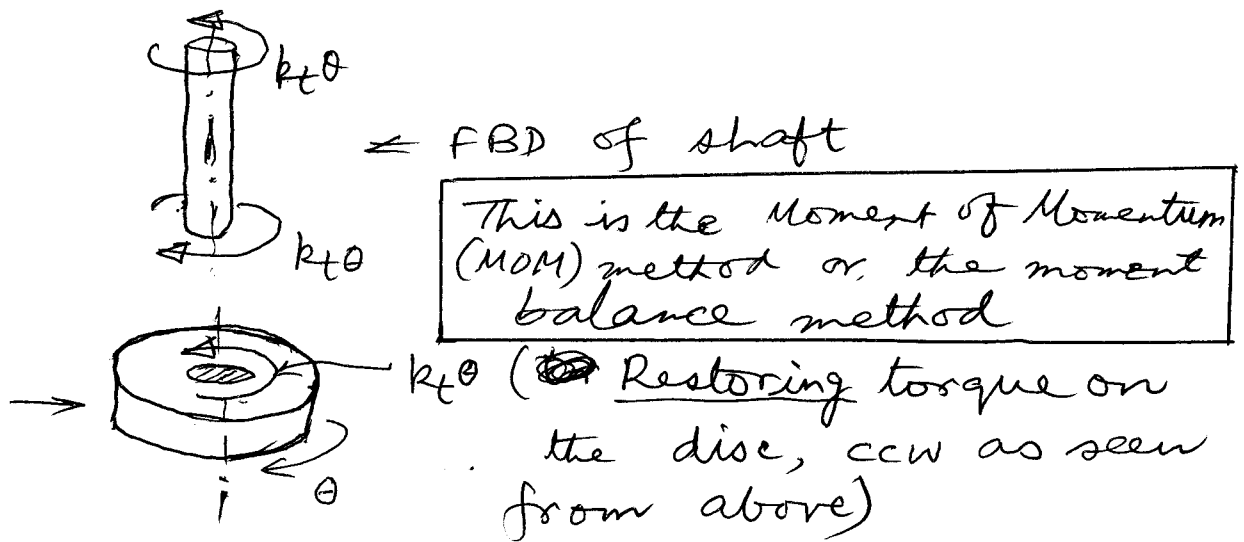 k_tθ
← FBD of shaft
This is the Moment of Momentum
(MOM) method or, the moment
balance method
k_tθ
k_tθ ( Restoring torque on
the disc, ccw as seen
from above)
θ